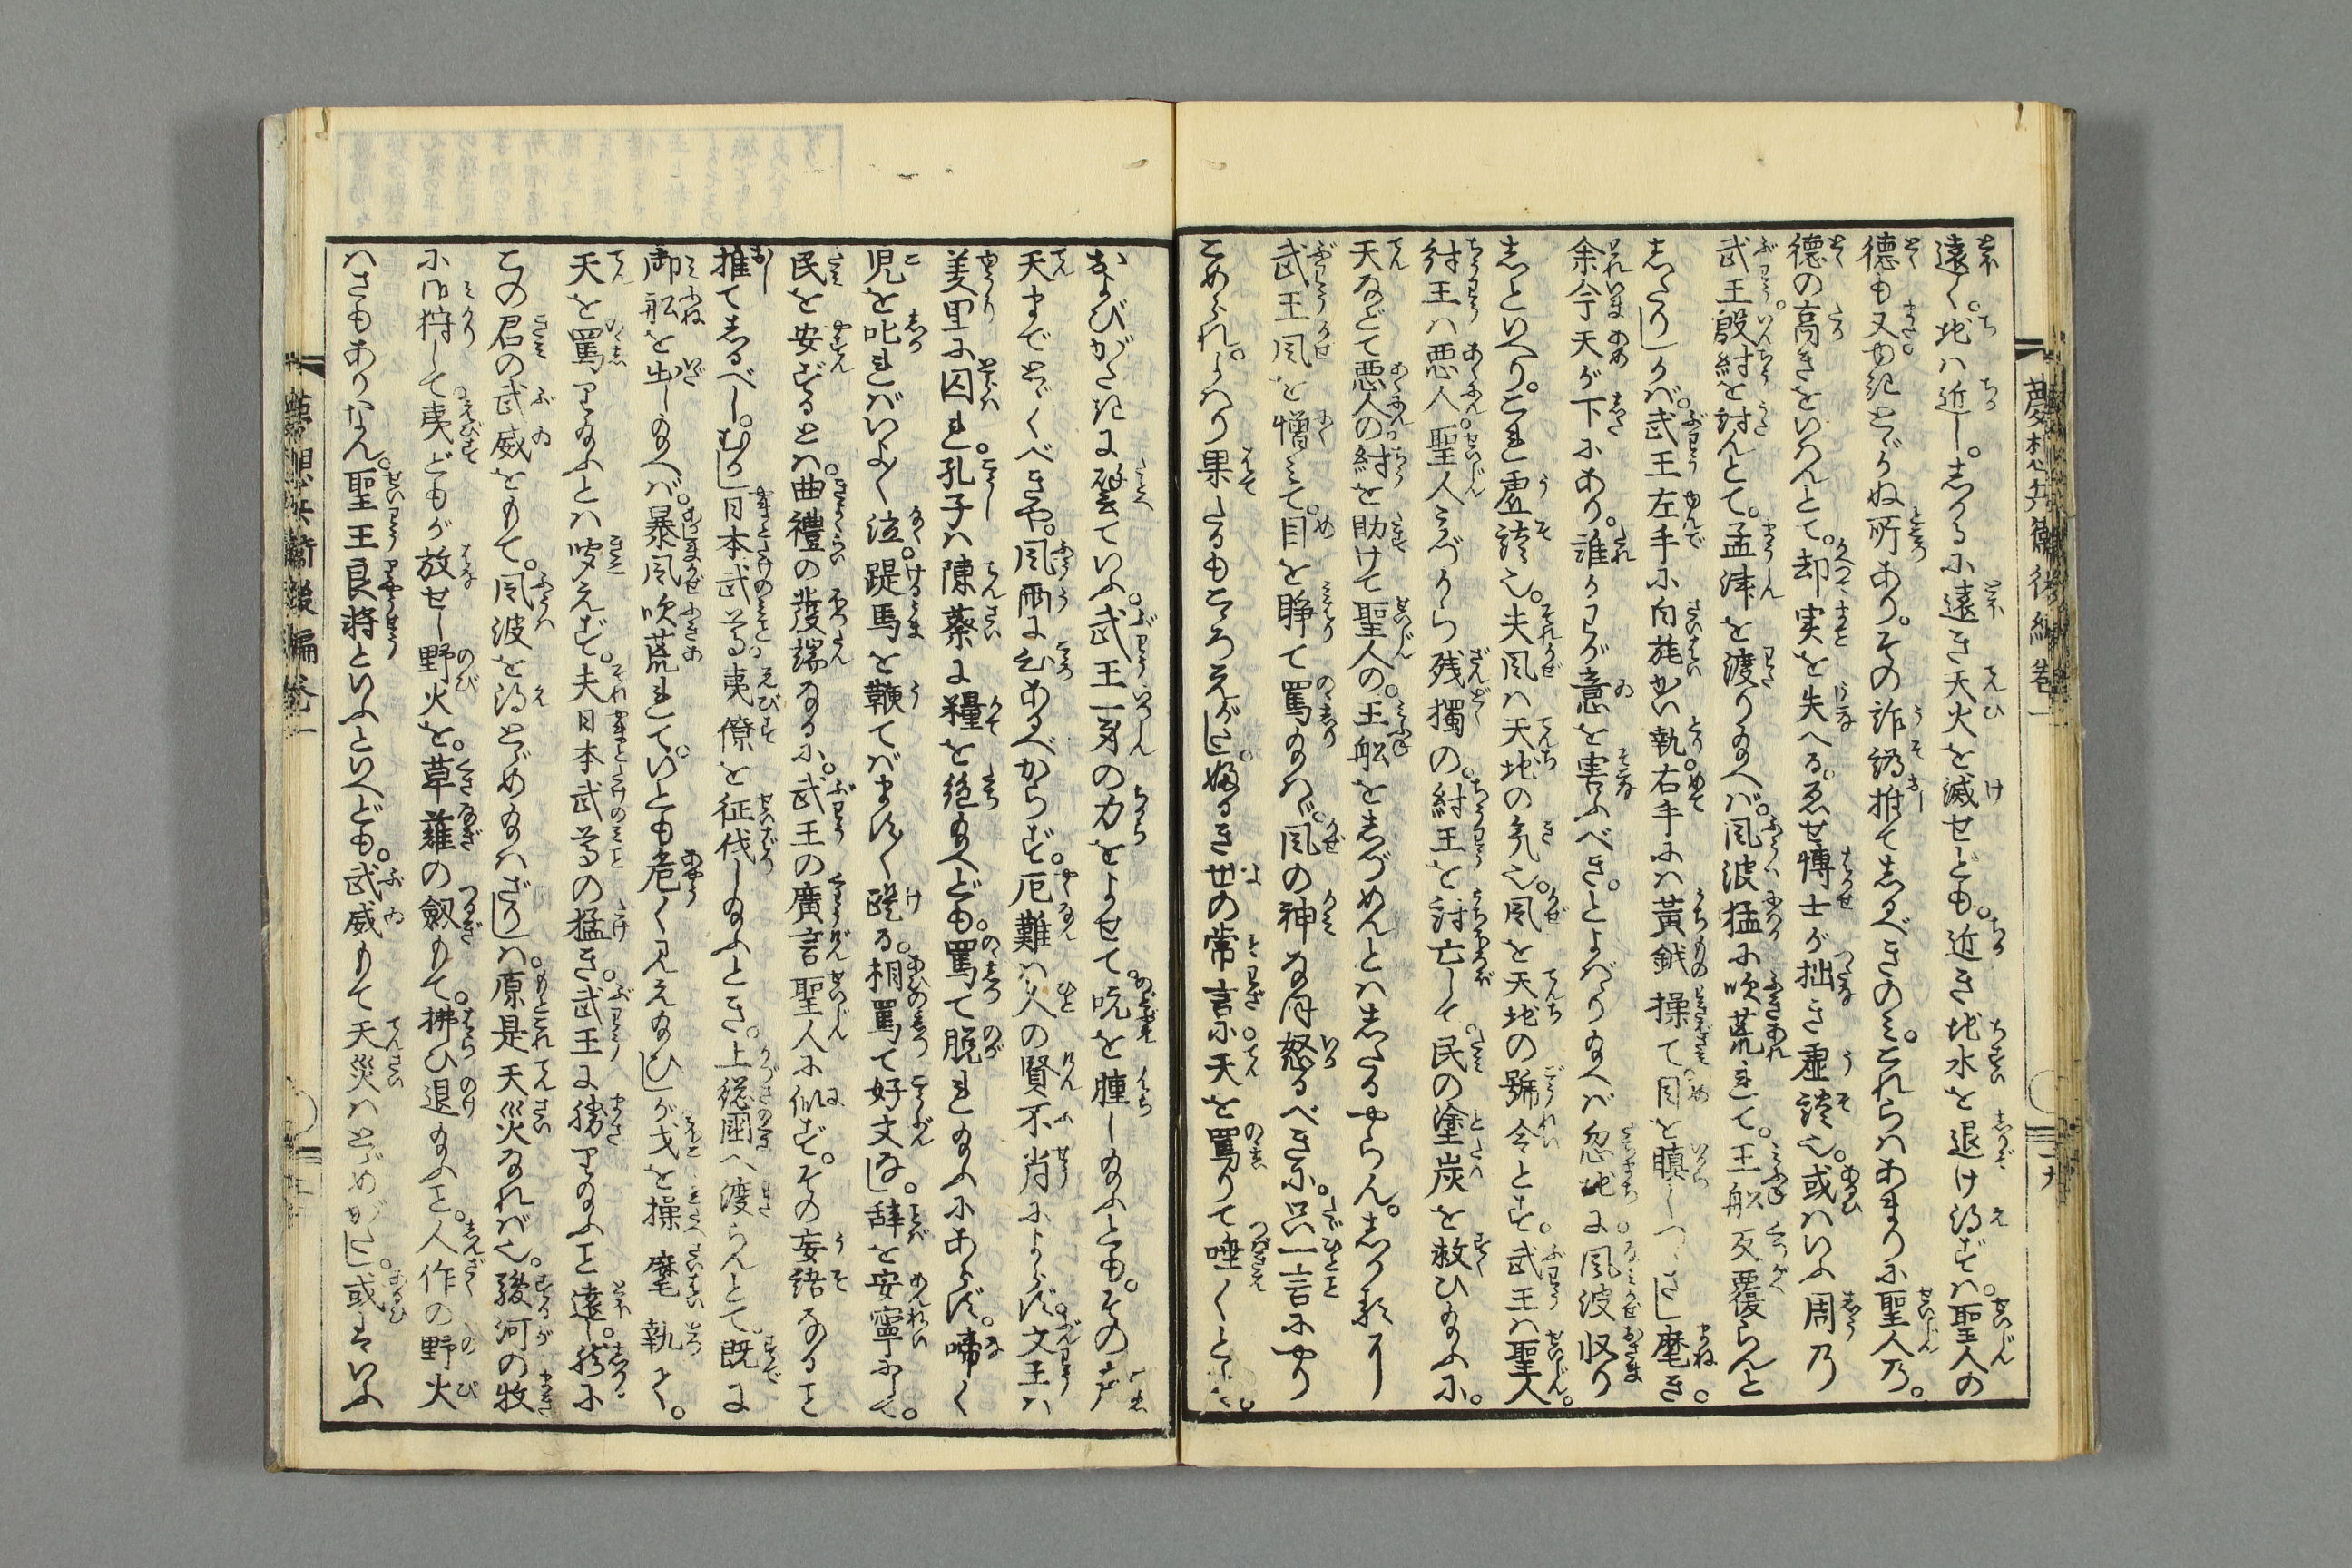 夢想兵衛後編 巻一
遠く。地は近し。しかるに遠き天火を滅せども。近き地水を退け得ずは。聖人の
徳も又およばぬ所あり。その詐偽推てしるべきのみ。これらはあまりに聖人乃。
徳の高きをいはんとて。却実を失へる。ゑせ博士が拙き虚談也。或はいふ周乃
武王殷紂を討んとて。孟津を渡り給へば。風波猛に吹荒れて。王舩反覆らんと
したりしかば。武王左手に白旄を執。右手には黄鉞操て目を瞋らしつゝさし麾き。
余今天が下にあり。誰かわが意を害ふべき。とよばゝり給へば忽地に風波収り
しといへり。これ虚談也。夫風は天地の気也。風を天地の号令とす。武王は聖人。
紂王は悪人。聖人みづから残獨の。紂王を討亡して。民の塗炭を救ひ給ふに。
天などて悪人の紂を助けて聖人の。王舩をしづめんとはしたるやらん。
武王風を憎みて。目を睜て罵給はゞ。風の神なほ怒るべきに。只一言にやり
こめられ。よはり果たるもこゝろえがたし。世の常言に天を罵りて唾くとも。
およびがたきに譬ていふ。武王一身の力をよせて。吭を腫し給ふとも。その声
天までとゞくべきや。風雨に心あるべからず。厄難は人の賢不肖によらず。文王は
羑里に囚れ。孔子は陳蔡に糧を絶給へども。罵て脱れ給ふにあらず。啼く
児を叱ればいよゝ泣。踶馬を鞭てばます〳〵踶る。相罵て好文なし。辞を安寧にして。
民を安ずるとは。曲禮の発端なるに。武王の廣言聖人に似ず。その妄語なること
推てしるべし。むかし日本武尊。夷僚を征伐し給ふとき。上総国へ渡らんとて。既に
御舩を出し給へば。暴風吹荒れて。いとも危く見え給ひしが戈を操麾執て。
天を罵り給ふとは聞えず。夫日本武尊の猛き。武王に勝り給ふこと遠し。然るに
この君の武威をもて。風波を得とゞめ給はざりしは。原是天災なれば也。駿河の牧
に御狩して夷どもが放せし野火を。草薙の劔もて。拂ひ退給ふこと。人作の野火
はさもありなん。聖王良将といふといへども。武威もて天災はとゞめがたし。或はいふ
夢想兵衛後編巻一